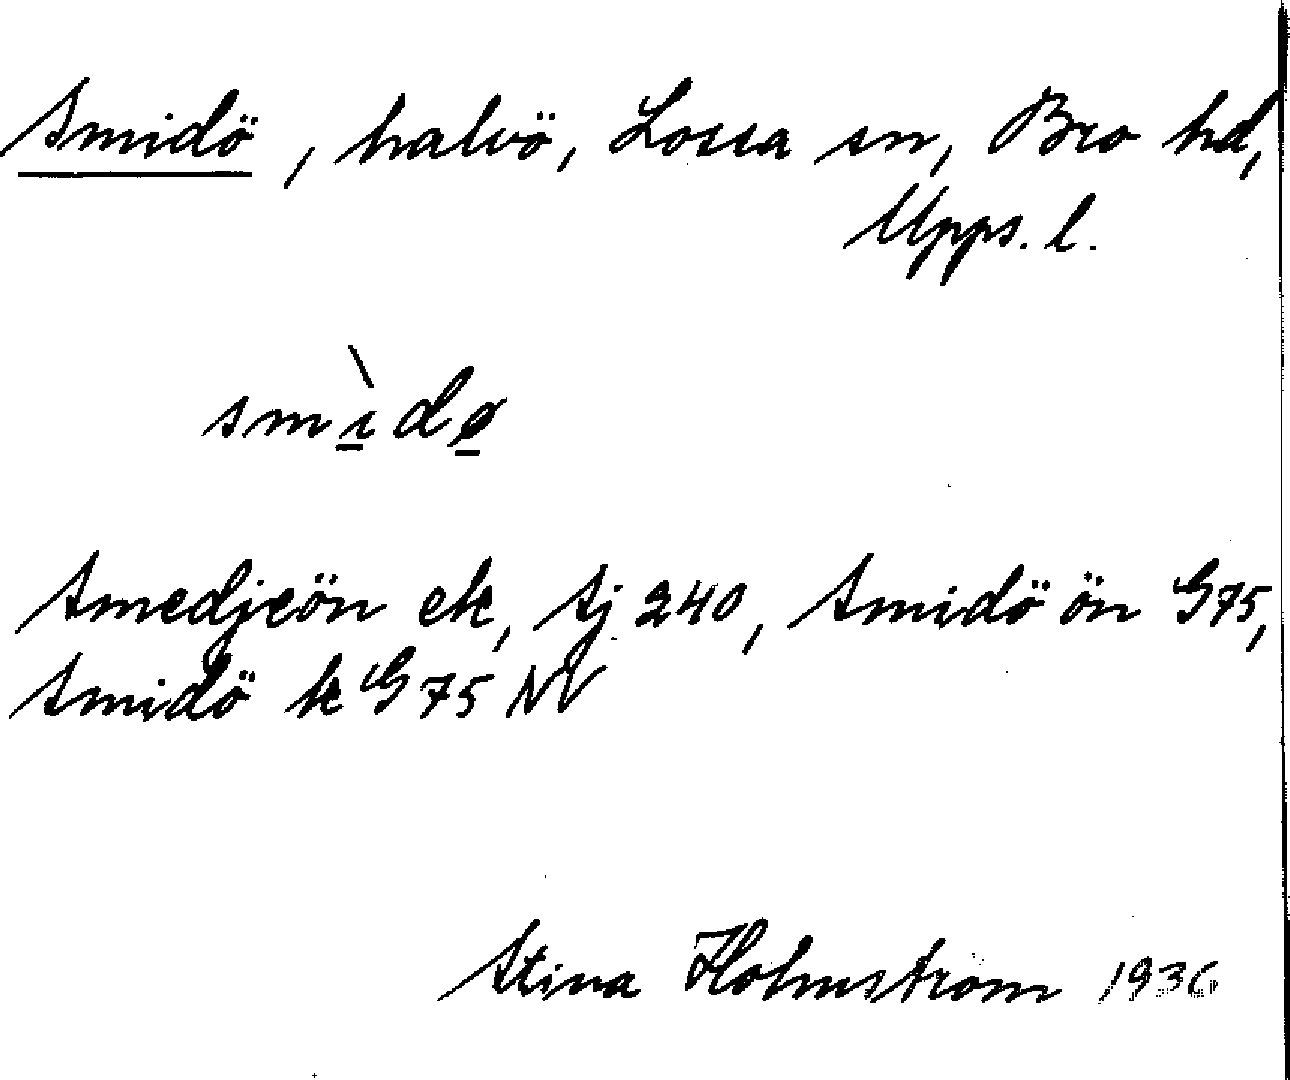 Smidö, halvö, Lossa sn, Bro hd,
Upps. l.
smìdø
Smedjeön ek, Sj 240, Smidö ön G75,
Smidö k G75 NV
Stina Holmström 1936